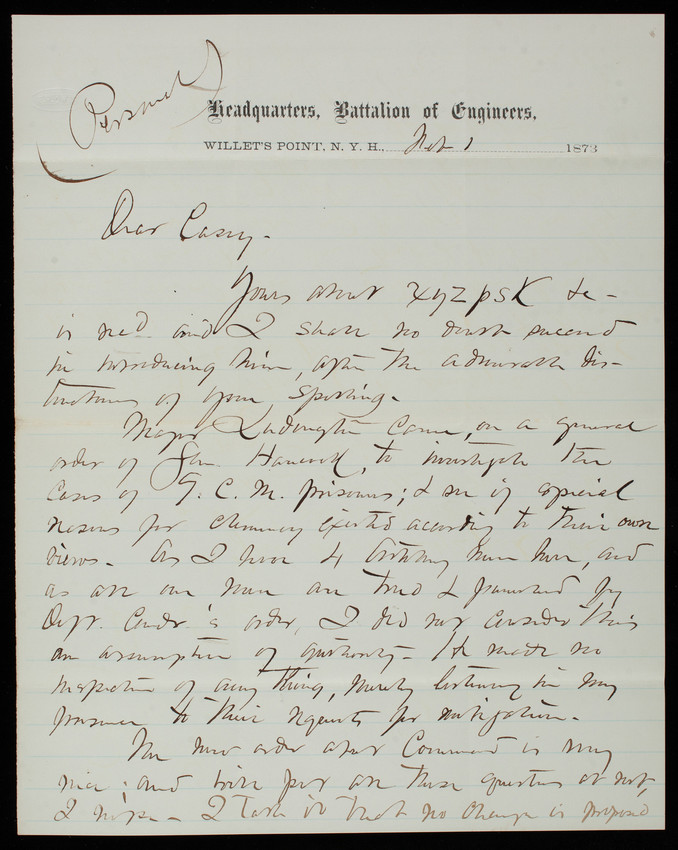 (Personal)
Headquarters, Battalion of Engineers,
WILLET'S POINT, N. Y. H., Feb 1 1873
Dear Casey -
Yours about xyzpsk &c -
is rec'd and I shall no doubt succeed
in introducing him, after the admirable
of your spelling.
Major Ludington came, on a general
order of Gen. Hancock, to investigate the
cases of G. C. M. prisoners; & see if special
reasons for clemency existed according to their own
views - As I have 4 Artillery men here, and
as all our men are tried & punished by
Dept. Comdr's order, I did not consider this
an assumption of authority - He made no
inspection of any thing, merely listening in my
presence to their requests for mitigation.
The new order about Command is very
nice; and will put all these questions at rest,
I hope - I take it that no change is proposed